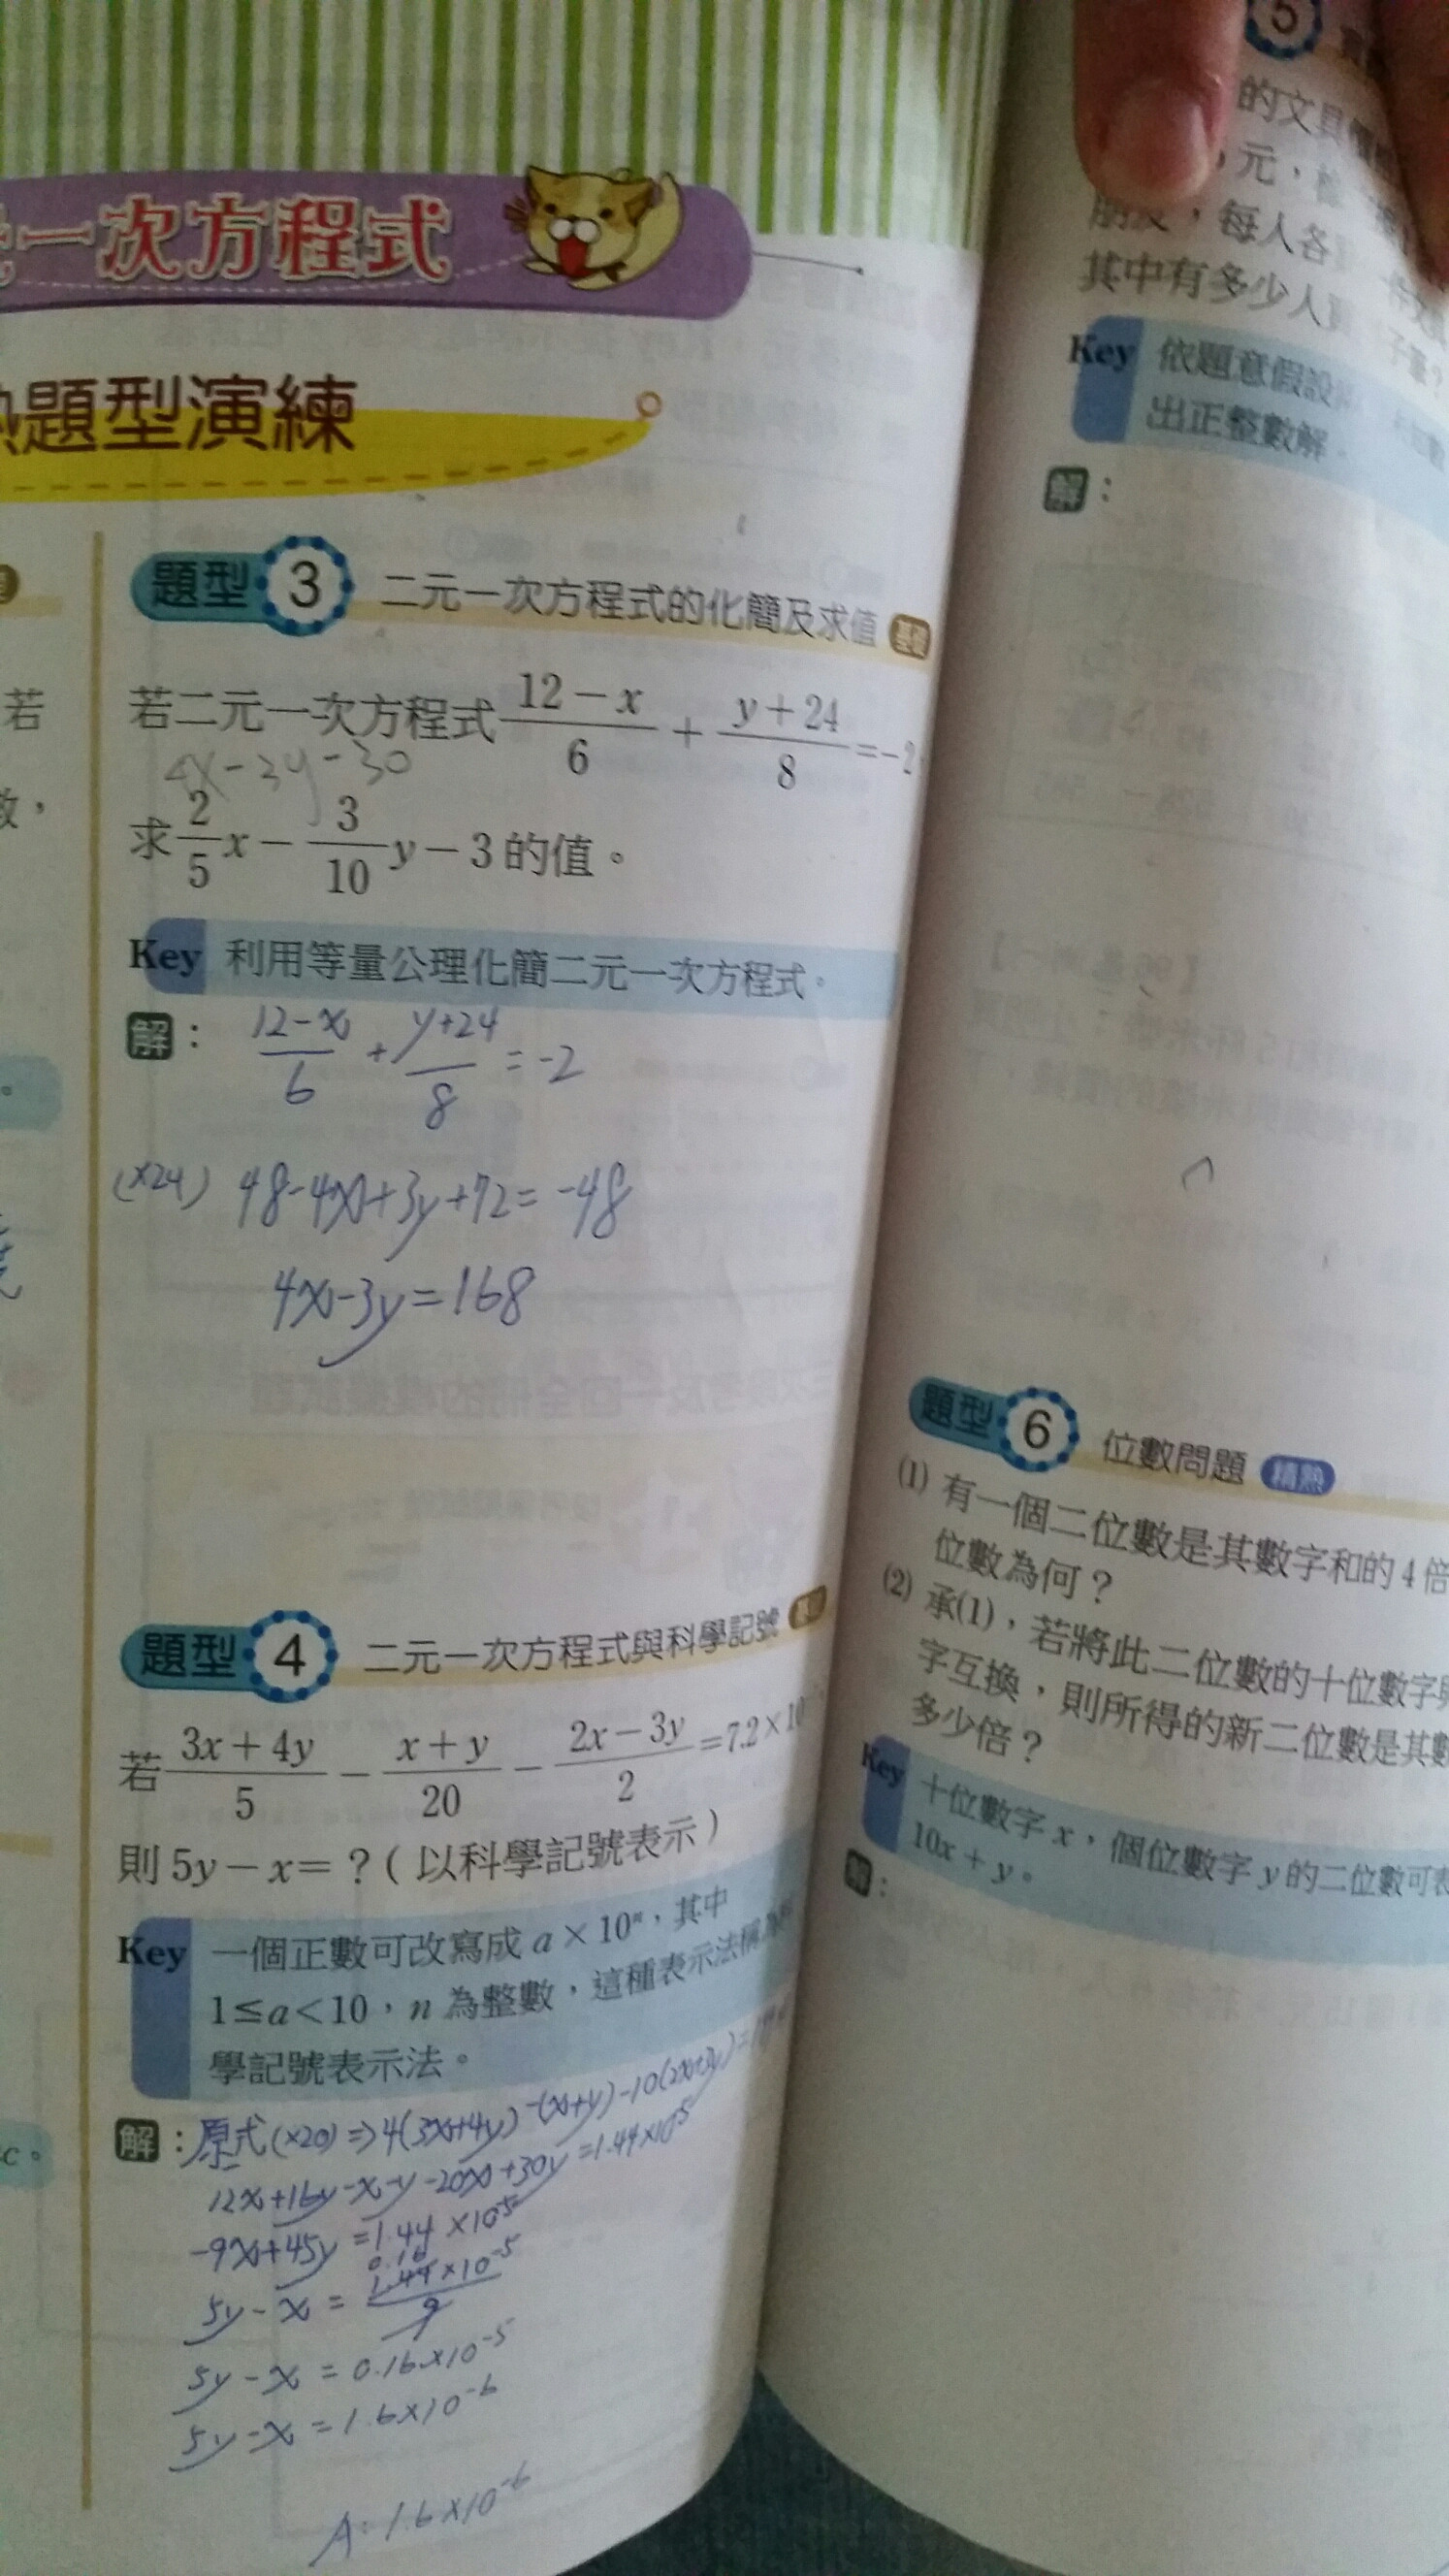 一次方程式
題型演練
題型 3 二元一次方程式的化簡及求值 基礎
若
若二元一次方程式 (12－x)/6 ＋ (y＋24)/8 ＝－2
4x-3y-30
數，
求 2/5 x － 3/10 y－3 的值。
Key 利用等量公理化簡二元一次方程式。
解： (12-x)/6 + (y+24)/8 = -2
(×24) 48-4x+3y+72=-48
4x-3y=168
題型 4 二元一次方程式與科學記號
若 (3x＋4y)/5 － (x＋y)/20 － (2x－3y)/2 ＝7.2×10
則 5y－x＝？（以科學記號表示）
Key 一個正數可改寫成 a×10ⁿ，其中
1≦a<10，n 為整數，這種表示法稱為
學記號表示法。
解：原式(×20)⇒4(3x+4y)-(x+y)-10(2x-3y)=
12x+16y-x-y-20x+30y=1.44×10⁻⁵
-9x+45y=1.44×10⁻⁵
0.16
5y-x= 1.44×10⁻⁵/9
5y-x=0.16×10⁻⁵
5y-x=1.6×10⁻⁶
A:1.6×10⁻⁶
c。
5
的文具
元，
朋友，每人各
其中有多少人買
Key 依題意假設
出正整數解。
解：
題型 6 位數問題 精熟
(1) 有一個二位數是其數字和的 4 倍
位數為何？
(2) 承(1)，若將此二位數的十位數字與
字互換，則所得的新二位數是其數
多少倍？
Key 十位數字 x，個位數字 y 的二位數可表
10x＋y。
解：